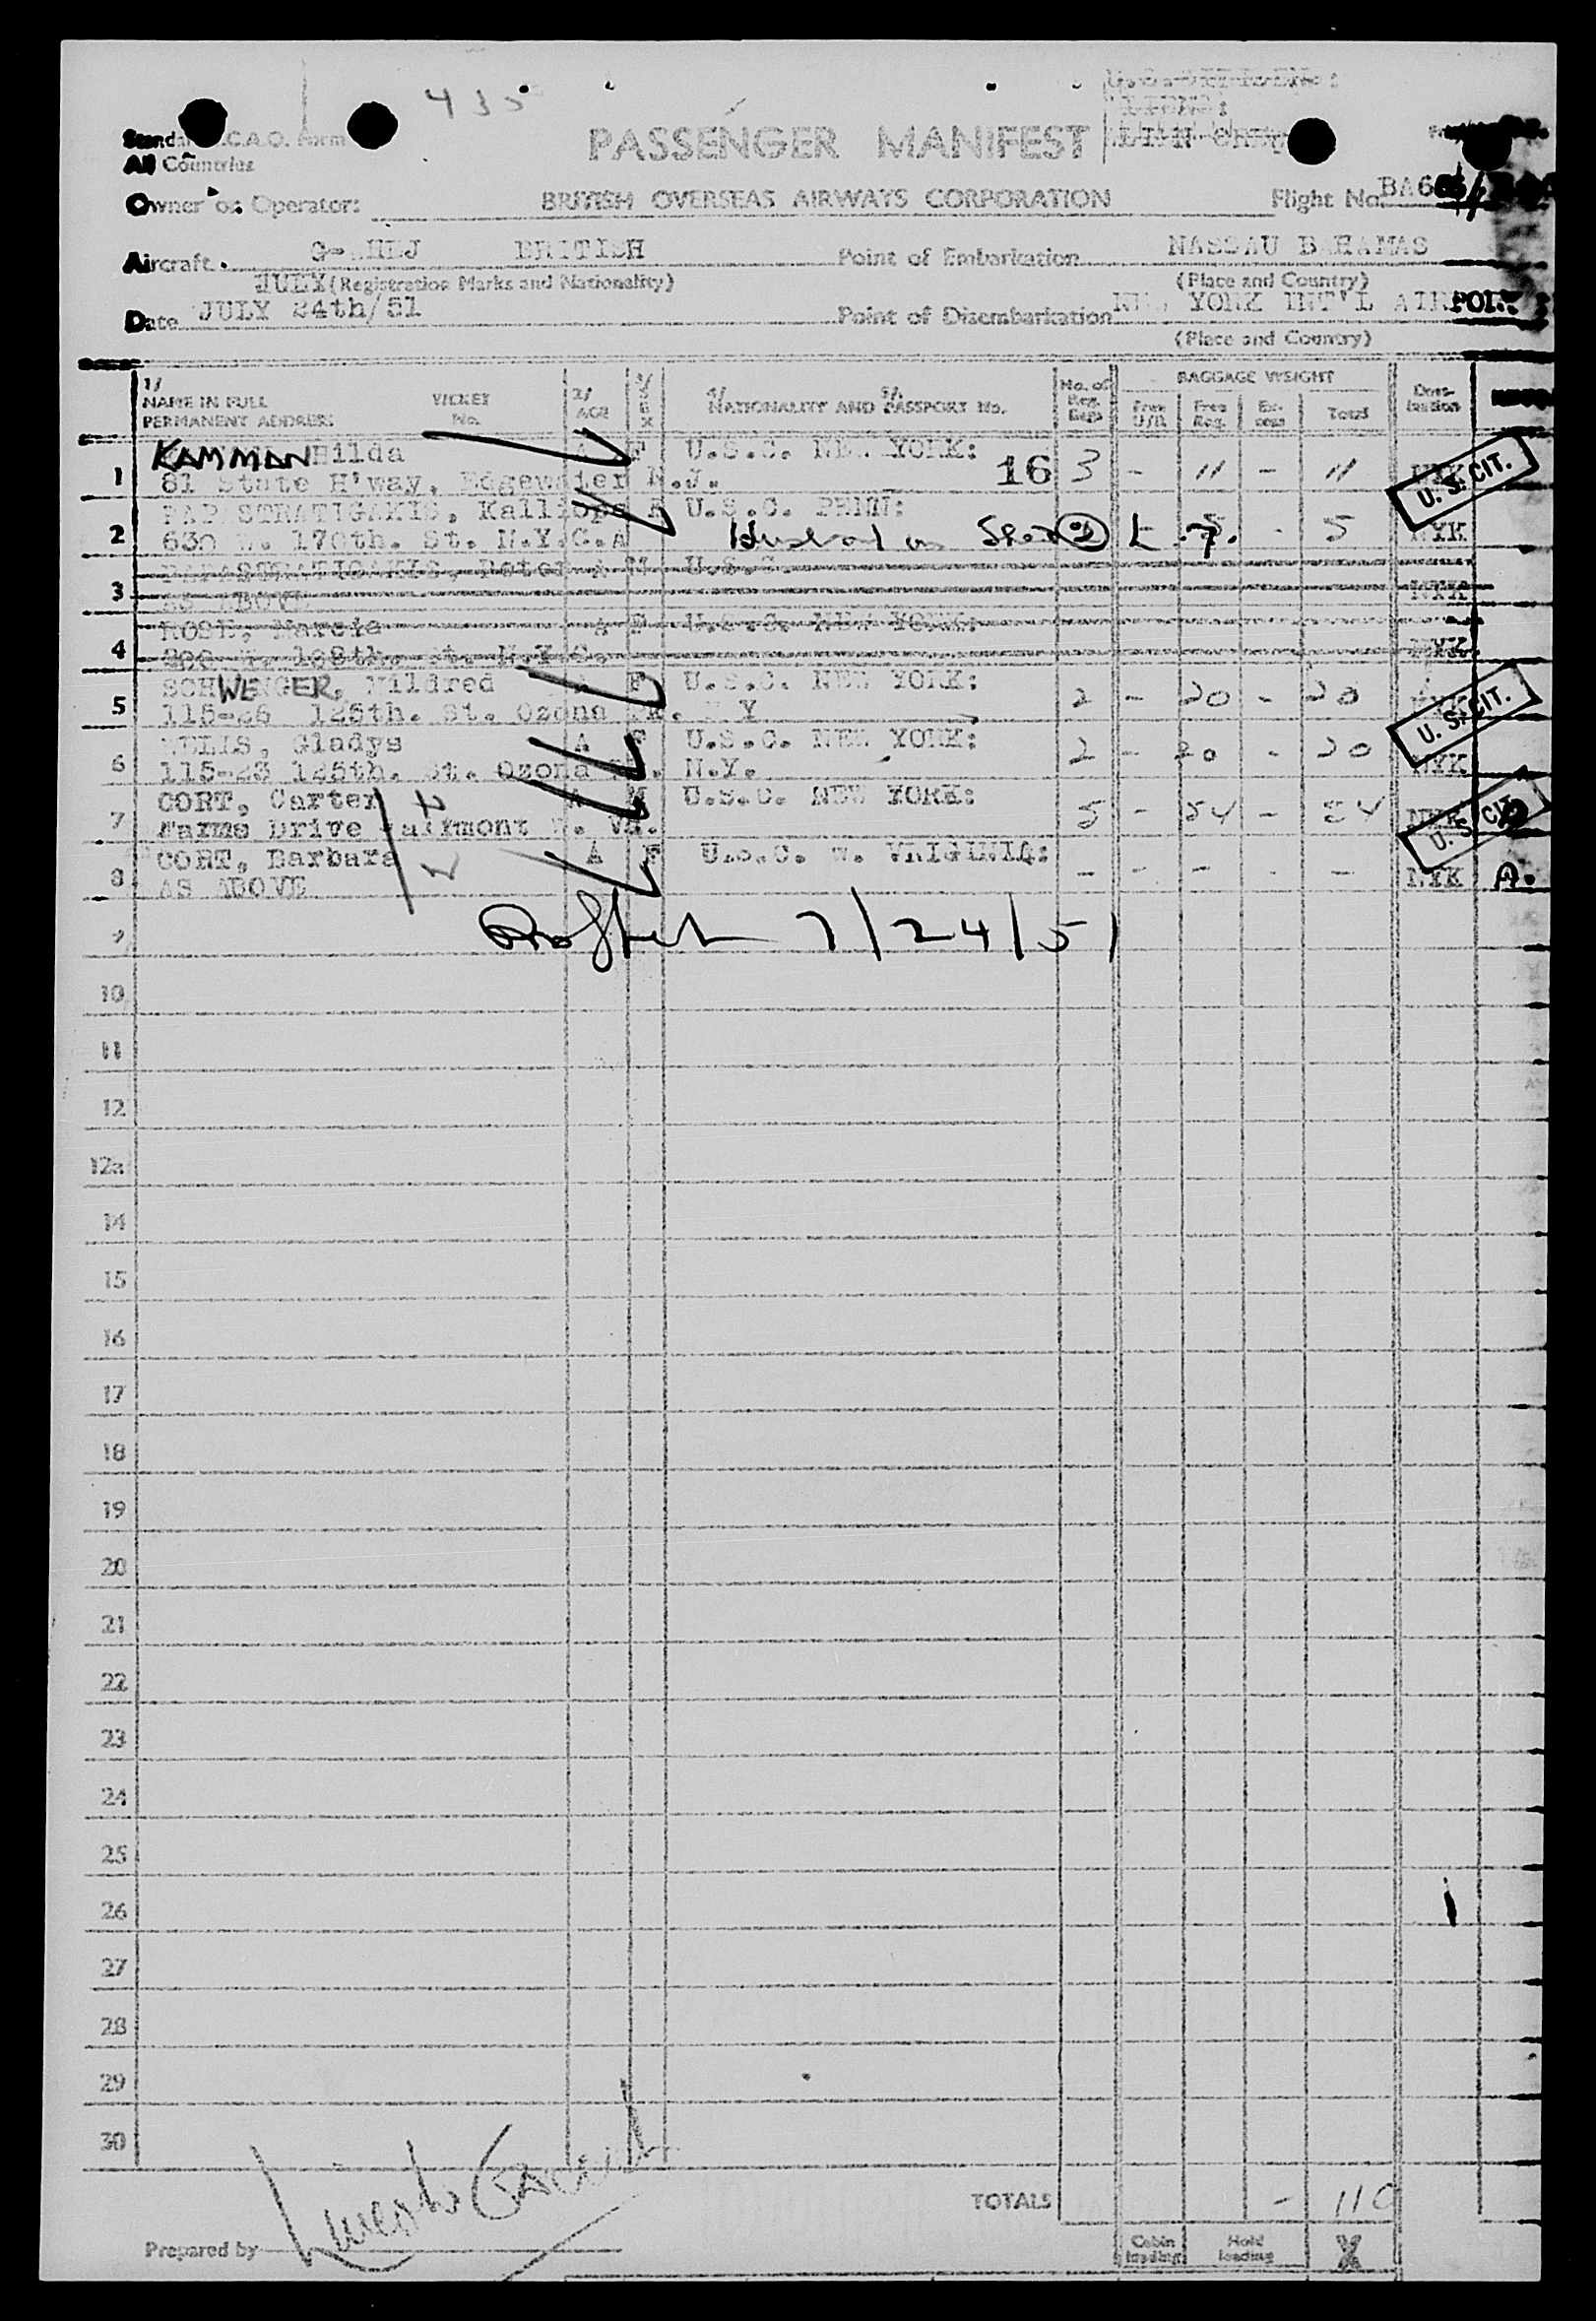 435
PASSENGER MANIFEST
All Countries
Owner or Operator: BRITISH OVERSEAS AIRWAYS CORPORATION Flight No.
Aircraft BRITISH Point of Embarkation NASSAU BAHAMAS
JULY (Registration Marks and Nationality) (Place and Country)
Date JULY 24th/51 Point of Disembarkation YORK INT'L AIRPORT
(Place and Country)
1/ NAME IN FULL TICKET 2/ 3/ 4/ 5/ No. of BAGGAGE WEIGHT Dest-
PERMANENT ADDRESS No. AGE SEX NATIONALITY AND PASSPORT No. Reg. Bags Free U/R Free Reg. Ex-cess Total ination
1 KAMMAN Hilda A F U.S.C. NEW YORK: 16 3 - 11 - 11 NYK U. S. CIT.
81 State H'way, Edgewater N.J.
2 PAPASTRATIGAKIS, Kalliope U.S.C. PENN: 5 NYK
630 W. 170th. St. N.Y.C.
3 PAPASTRATIGAKIS, Peter A M U.S.C. NYK
AS ABOVE
4 ROSE, Marcia A F U.S.C. NEW YORK: NYK
W. 108th. St. N.Y.C.
5 SCHWENGER, Mildred A F U.S.C. NEW YORK: 2 - 20 - 20 NYK U. S. CIT.
115-26 125th. St. Ozona Pk. N.Y
6 Gladys A F U.S.C. NEW YORK: 2 - 20 - 20 NYK
115-23 125th. St. Ozona Pk. N.Y.
7 CORT, Carter A M U.S.C. NEW YORK: 5 - 54 - 54 NYK U. S. CIT.
Farms Drive Fairmont W. Va.
8 CORT, Barbara A F U.S.C. W. VRIGINIA: - - - - - NYK A.
AS ABOVE
9 7/24/51
10
11
12
12a
14
15
16
17
18
19
20
21
22
23
24
25
26
27
28
29
30
TOTALS - 110
Prepared by Cabin loading Hold loading X